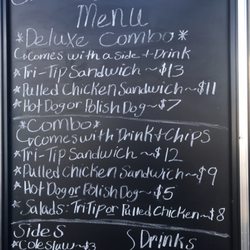 Menu
*Deluxe Combo*
Comes with a Side + Drink
*Tri-Tip Sandwich ~ $13
*Pulled Chicken Sandwich ~ $11
*Hot Dog or Polish Dog ~ $7
*Combo*
Comes with Drink + Chips
*Tri-Tip Sandwich ~ $12
*Pulled Chicken Sandwich ~ $9
*Hot Dog or Polish Dog ~ $5
*Salads: Tri Tip or Pulled Chicken ~ $8
Sides
Drinks
*Coleslaw ~ $3